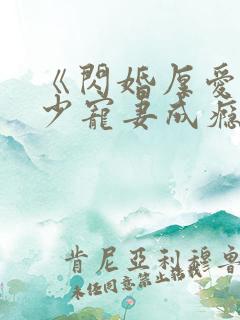 《閃婚厚愛
少寵妻成癮
肯尼亞利穆魯
未任同意禁止搭載